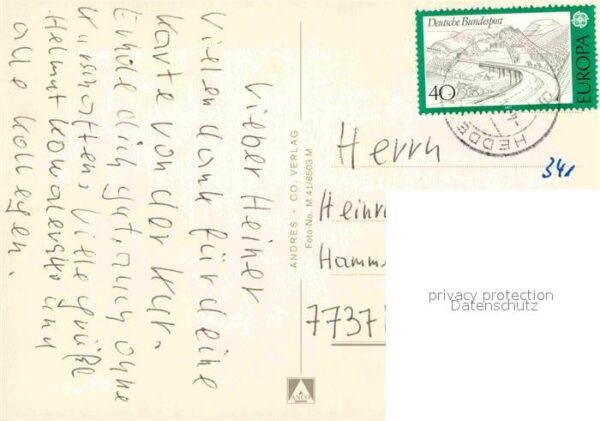 Lieber Heiner
Vielen Dank für deine
Karte von der Kur.
Erhole dich gut, auch ohne
Kurschatten, Viele Grüße
Helmut Kowalewsko und
alle Kollegen.
ANDRES + CO. VERLAG
Foto-No. M 41/8503 M
ANCO
Deutsche Bundespost
40
EUROPA
CEPT
HEDDE
Herrn
Heinr
Hamm
7737
341
privacy protection
Datenschutz